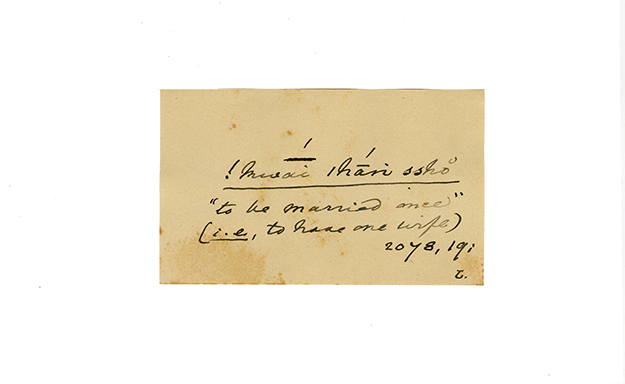 !kwāí |hā́ri sshō̊
"to be married once"
(i.e., to have one wife)
2078, 191
t.